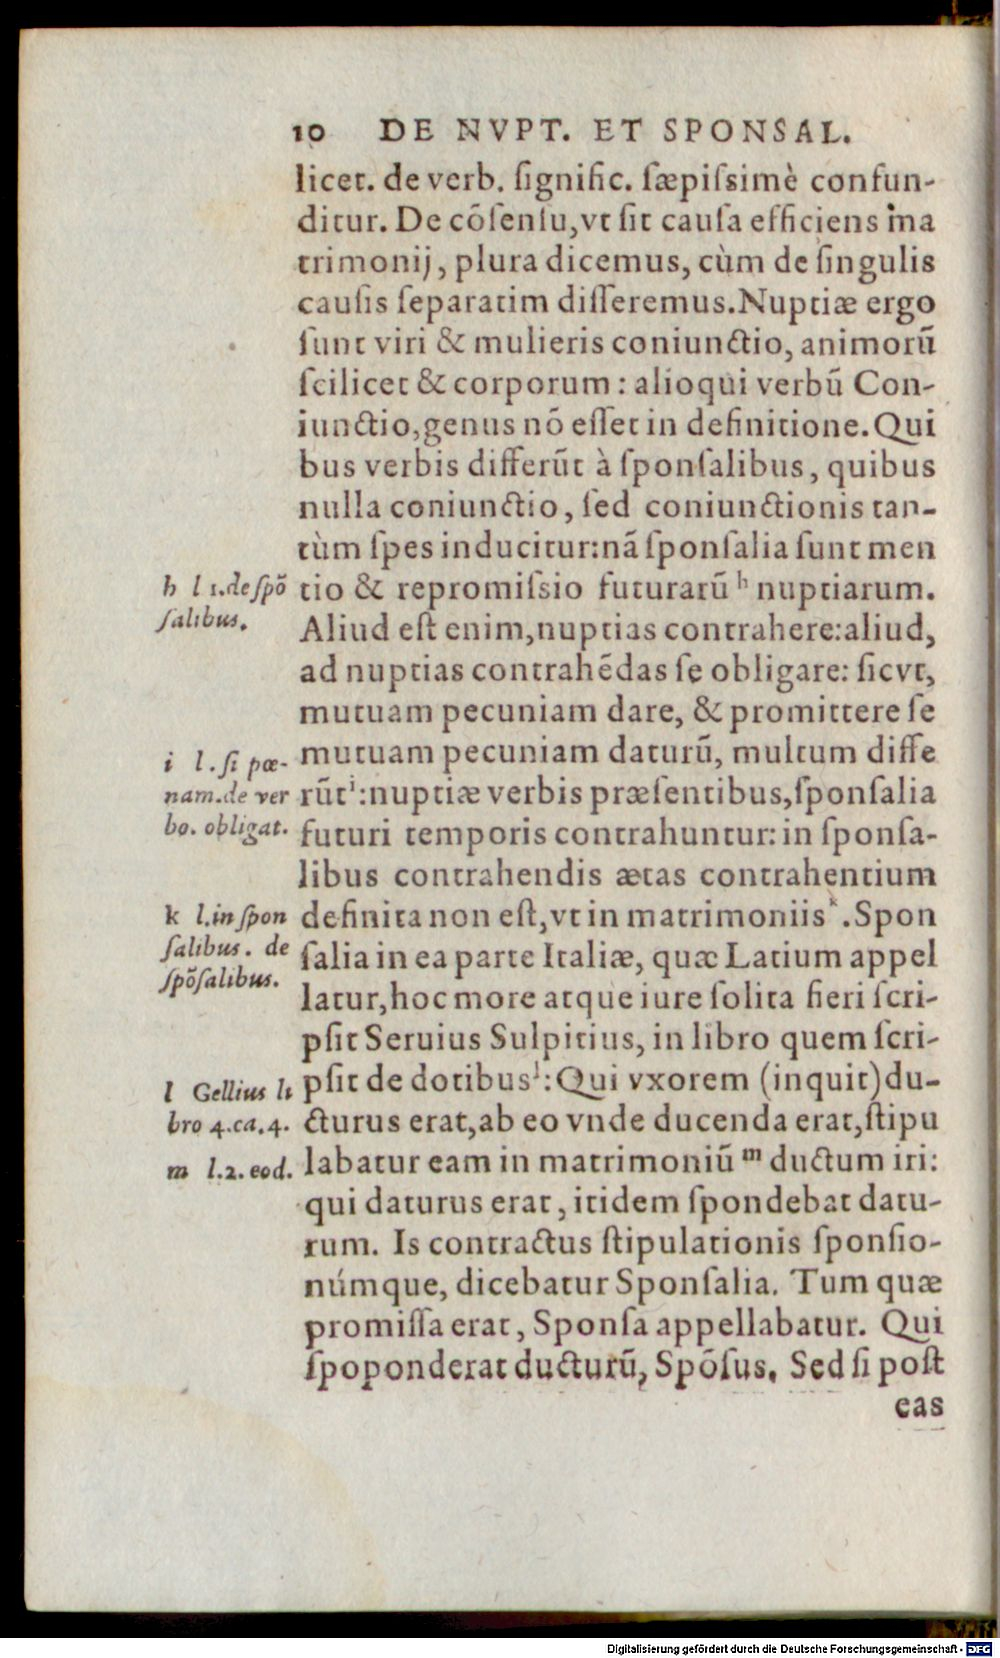 10 DE NVPT. ET SPONSAL.
licet. de verb. ſignific. ſæpiſsimè confun-
ditur. De cõſenſu,vt ſit cauſa efficiens ma
trimonij, plura dicemus, cùm de ſingulis
cauſis ſeparatim diſſeremus.Nuptiæ ergo
ſunt viri & mulieris coniunctio, animorũ
ſcilicet & corporum : alioqui verbũ Con-
iunctio,genus nõ eſſet in definitione.Qui
bus verbis differũt à ſponſalibus, quibus
nulla coniunctio, ſed coniunctionis tan-
tùm ſpes inducitur:nã ſponſalia ſunt men
h l 1.de ſpõ
ſalibus.
tio & repromiſsio futurarũ h nuptiarum.
Aliud eſt enim,nuptias contrahere:aliud,
ad nuptias contrahẽdas ſe obligare: ſicvt,
mutuam pecuniam dare, & promittere ſe
i l. ſi pœ-
nam.de ver
bo. obligat.
mutuam pecuniam daturũ, multum diffe
rũt i:nuptiæ verbis præſentibus,ſponſalia
futuri temporis contrahuntur: in ſponſa-
libus contrahendis ætas contrahentium
k l.in ſpon
ſalibus. de
ſpõſalibus.
definita non eſt,vt in matrimoniis k.Spon
ſalia in ea parte Italiæ, quæ Latium appel
latur,hoc more atque iure ſolita fieri ſcri-
pſit Seruius Sulpitius, in libro quem ſcri-
l Gellius li
bro 4.ca.4.
pſit de dotibus l:Qui vxorem (inquit)du-
cturus erat,ab eo vnde ducenda erat,ſtipu
m l.2. eod.
labatur eam in matrimoniũ m ductum iri:
qui daturus erat, itidem ſpondebat datu-
rum. Is contractus ſtipulationis ſponſio-
númque, dicebatur Sponſalia. Tum quæ
promiſſa erat, Sponſa appellabatur. Qui
ſpoponderat ducturũ, Spõſus. Sed ſi poſt
eas
Digitalisierung gefördert durch die Deutsche Forschungsgemeinschaft - DFG